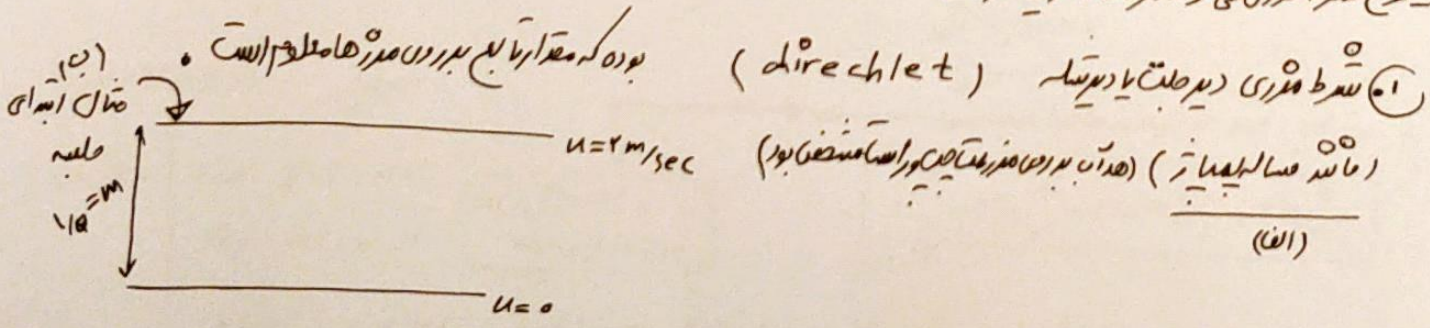 ۱. شرط مرزی دیرکلت یا دیریکله (direchlet) بوده که مقدار تابع بر روی مرزها معلوم است.
(مانند مساله پمپاژ) (هد آب بر روی مرز سمت چپ و راست مشخص بود)
(الف)
(ب)
مثال ابتدای
جلسه
u=۲ m/sec
u=۰